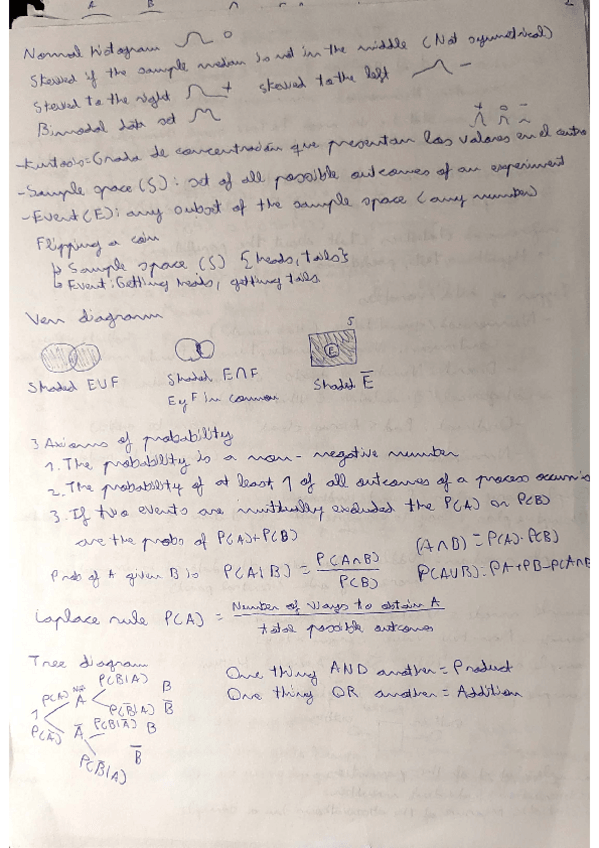 Normal histogram 0
Skewed if the sample median is not in the middle (Not symmetrical)
Skewed to the right + skewed to the left -
Bimodal data set
+ 0 -
-Kurtosis=Grado de concentración que presentan los valores en el centro
-Sample space (S): set of all possible outcomes of an experiment
-Event (E): any subset of the sample space (any number)
Flipping a coin
↳ Sample space (S) {heads, tails}
↳ Event: Getting heads, getting tails
Ven diagram
S
E
Shaded E∪F
Shaded E∩F
Shaded E̅
E y F in common
3 Axioms of probability
1. The probability is a non-negative number
2. The probability of at least 1 of all outcomes of a process occurring is
3. If two events are mutually excluded the P(A) or P(B)
are the probs of P(A)+P(B)
(A∩B) = P(A)·P(B)
Prob of A given B is P(A|B) = P(A∩B) / P(B)
P(A∪B)=PA+PB-P(A∩B
Laplace rule P(A) = Number of ways to obtain A / total possible outcomes
Tree diagram
One thing AND another = Product
One thing OR another = Addition
P(B|A) B
P(A) A
P(B̅|A) B̅
1
P(A̅) A̅ P(B|A̅) B
P(B̅|A) B̅